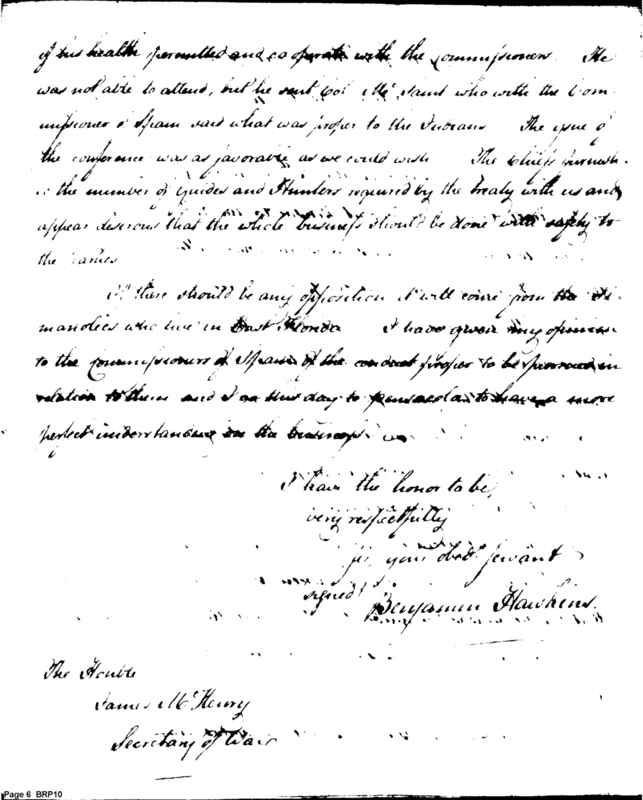 of his health permitted and cooperate with the commissioners. He
was not able to attend, but he sent Col Mc Saint who with the Com
missioner of Spain said what was proper to the Indians The issue of
the conference was as favorable as we could wish The Chiefs furnish
the number of guides and Hunters required by the treaty with us and
appear desirous that the whole business should be done with safety to
the parties
If there should be any opposition it will come from the Si
manolies who live in East Florida I have given my opinion
to the Commissioners of Spain of the conduct proper to be pursued in
relation to them and I go this day to pensacola to have a more
perfect understanding on the business.
I have the honor to be,
very respectfully
sir, your obedt servant
signed
Benjamin Hawkins.
The Honble
James McHenry
Secretary of War
Page 6 BRP10